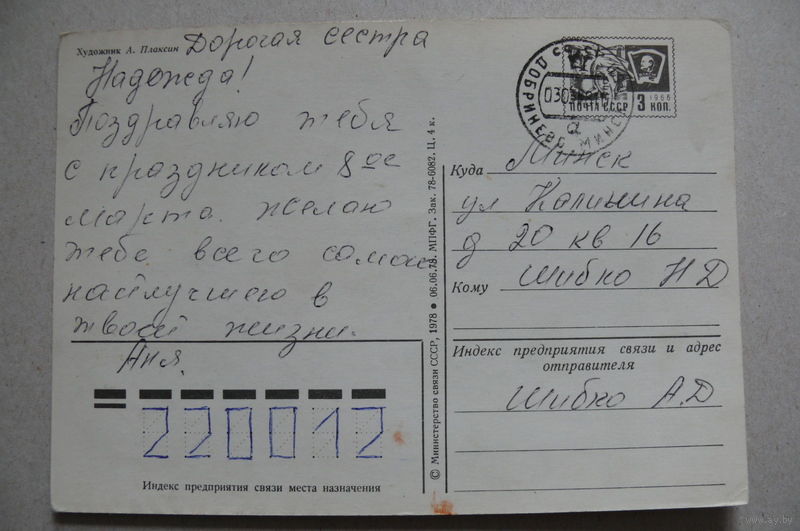 Художник А. Плаксин
Дорогая сестра
Надежда!
Поздравляю тебя
с праздником 8ое
марта. желаю
тебе всего самое
наилучшего в
твоей жизни.
Аня.
220012
Индекс предприятия связи места назначения
© Министерство связи СССР, 1978 ● 06.06.78. МПФГ. Зак. 78-6082. Ц. 4 к.
ПОЧТА СССР
1966
3 КОП.
ДОБРИНЕВО МИНСК
Куда Минск
ул Калинина
д 20 кв 16
Кому Шибко Н Д
Индекс предприятия связи и адрес
отправителя
Шибко А.Д
www.ay.by